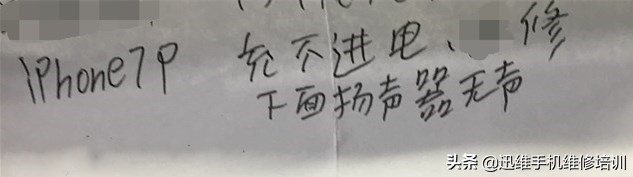 iPhone7P 充不进电、修
下面扬声器无声
头条@迅维手机维修培训